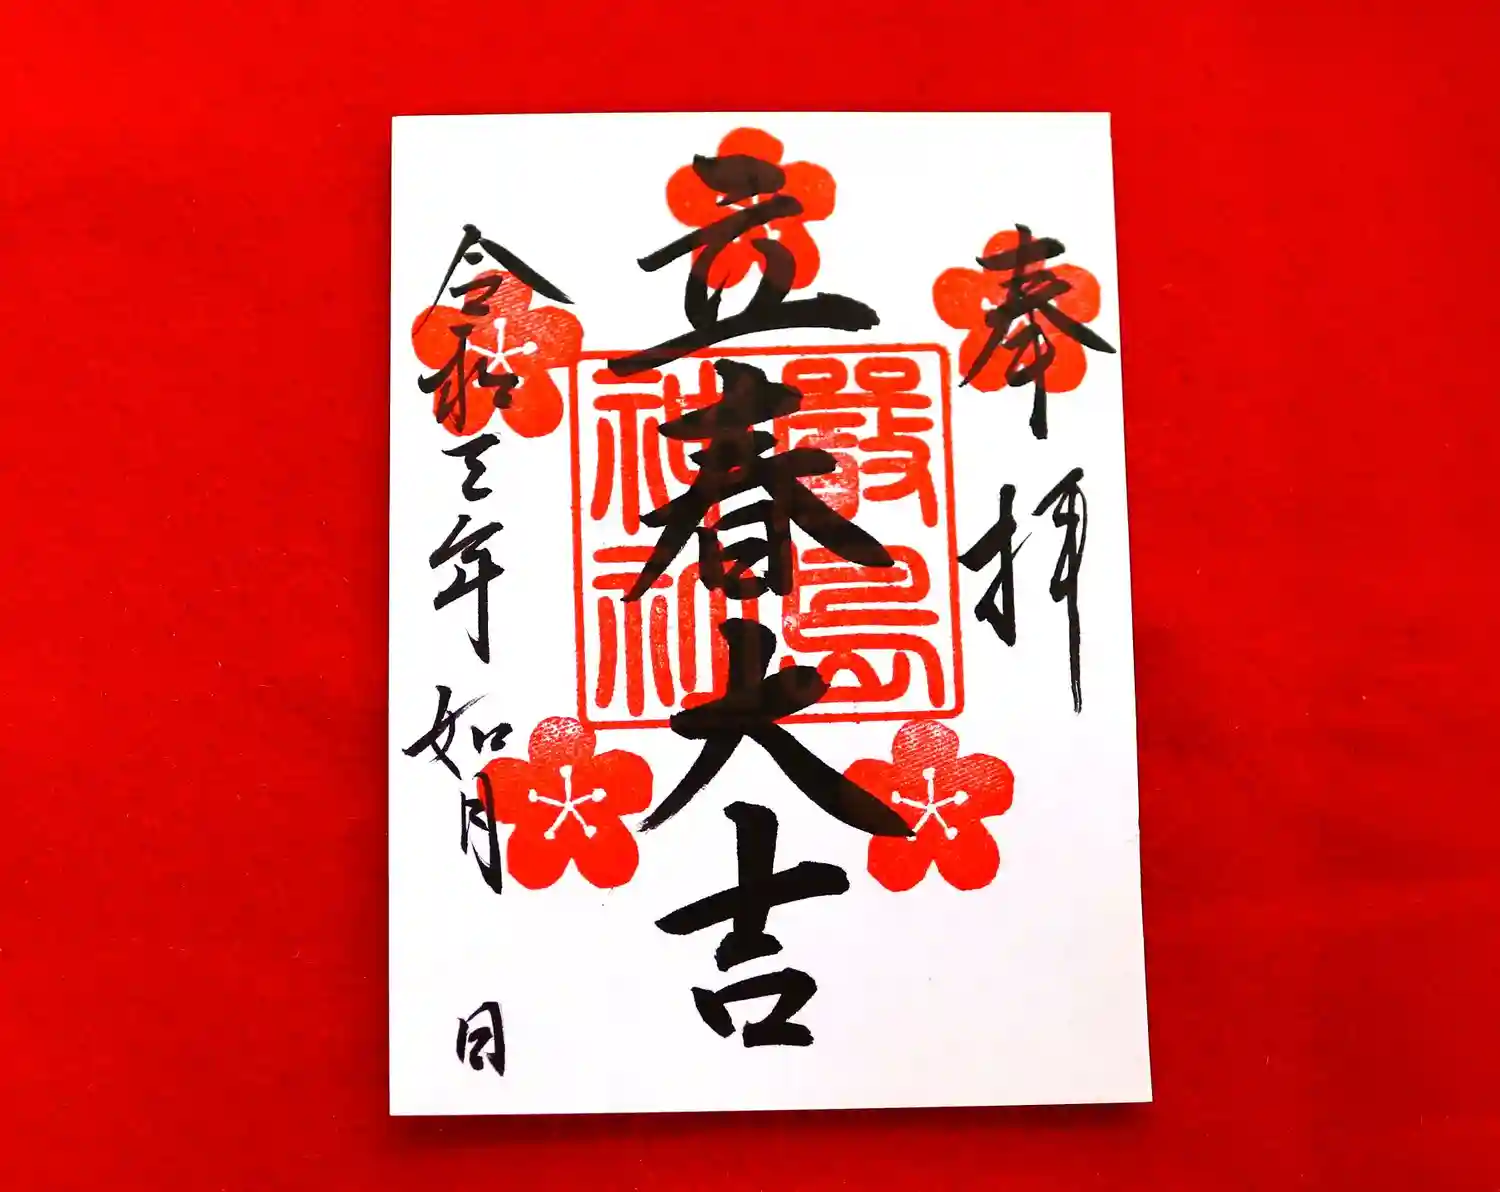 奉拝
立春大吉
嚴島
神社
令和三年如月 日